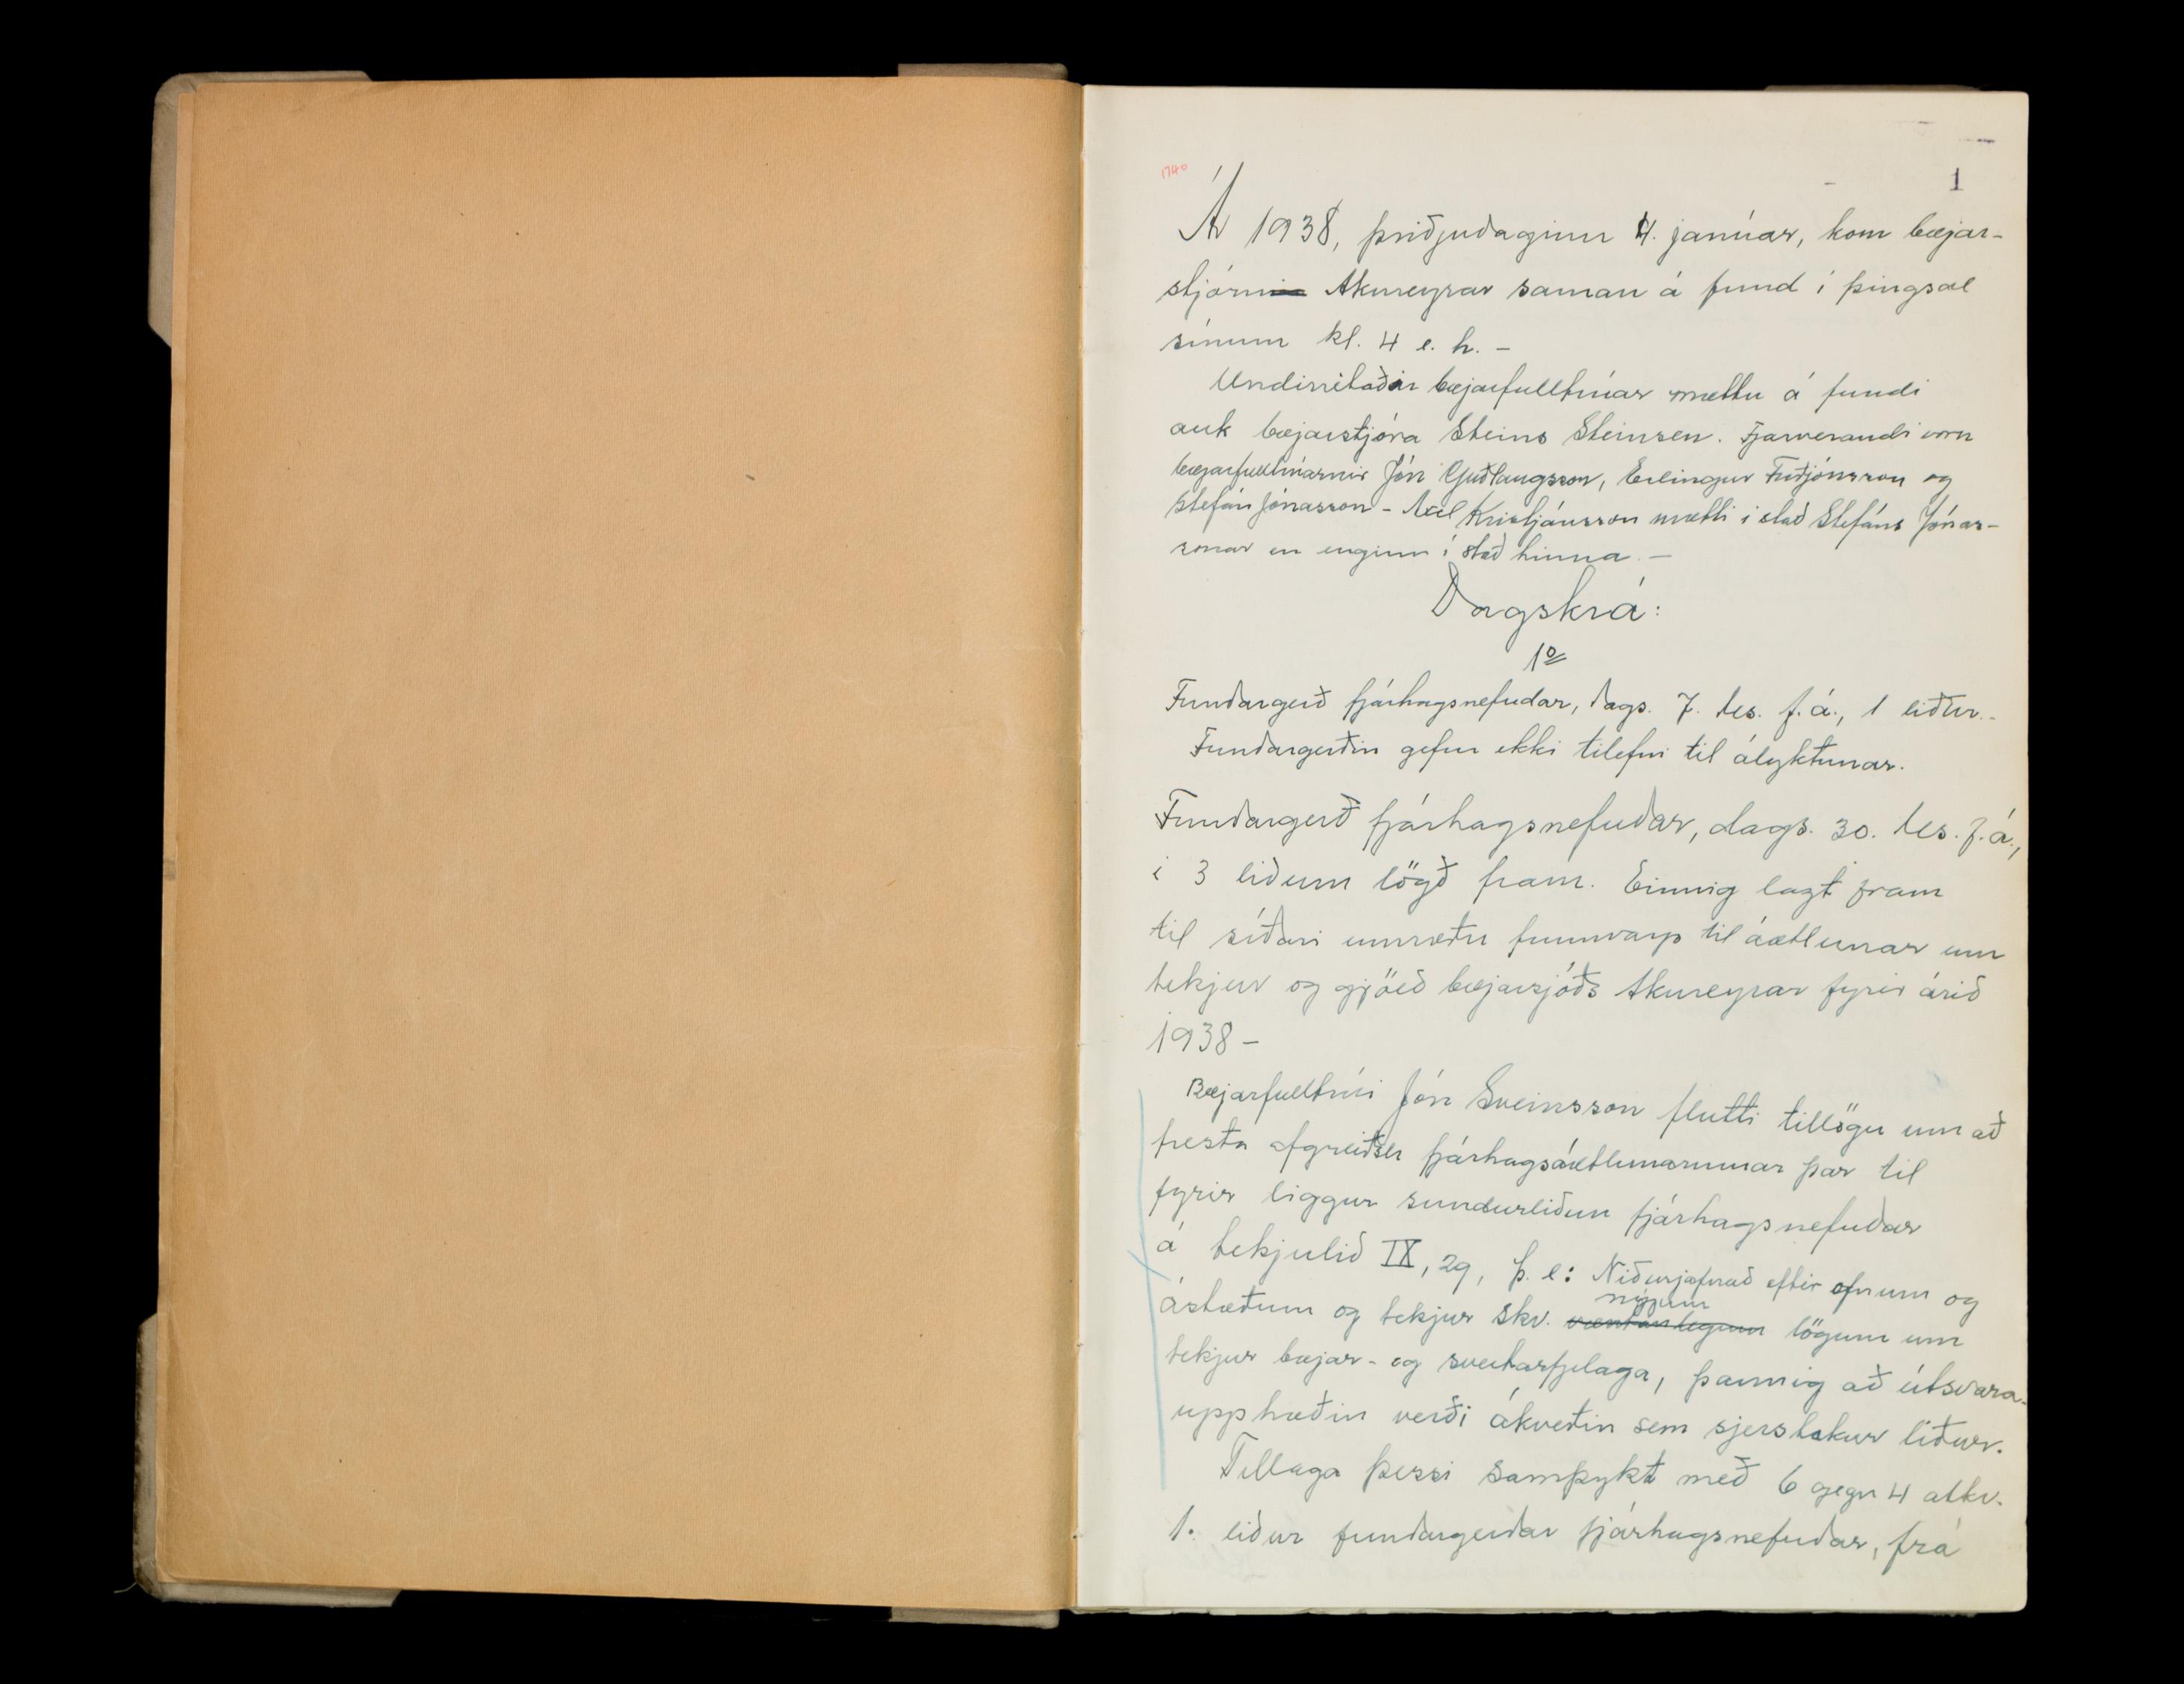 1740
1
Ár 1938, þriðjudaginn 4. janúar, kom bæjar-
stjórn Akureyrar saman á fund í þingsal
sínum kl. 4 e. h. -
Undirritaðir bæjarfulltrúar mættu á fundi
auk bæjarstjóra Steins Steinsen. Fjarverandi voru
bæjarfulltrúarnir Jón Guðlaugsson, Erlingur Friðjónsson og
Stefán Jónasson - Axel Kristjánsson mætti í stað Stefáns Jónas-
sonar en enginn í stað hinna. -
Dagskrá:
1o
Fundargerð fjárhagsnefndar, dags. 7. des. f. á., 1 liður. -
Fundargerðin gefur ekki tilefni til ályktunar.
Fundargerð fjárhagsnefndar, dags. 30. des. f. á.,
í 3 liðum lögð fram. Einnig lagt fram
til síðari umræðu frumvarp til áætlunar um
tekjur og gjöld bæjarsjóðs Akureyrar fyrir árið
1938 -
Bæjarfulltrúi Jón Sveinsson flutti tillögu um að
fresta afgreiðslu fjárhagsáætlunarinnar þar til
fyrir liggur sundurliðun fjárhagsnefndar
á tekjulið IX, 29, þ. e: Niðurjafnað eftir efnum og
nýjum
ástæðum og tekjur skv. væntanlegum lögum um
tekjur bæjar- og sveitarfjelaga, þannig að útsvara-
upphæðin verði ákveðin sem sjerstakur liður.
Tillaga þessi samþykt með 6 gegn 4 atkv.
1. liður fundargerðar fjárhagsnefndar, frá